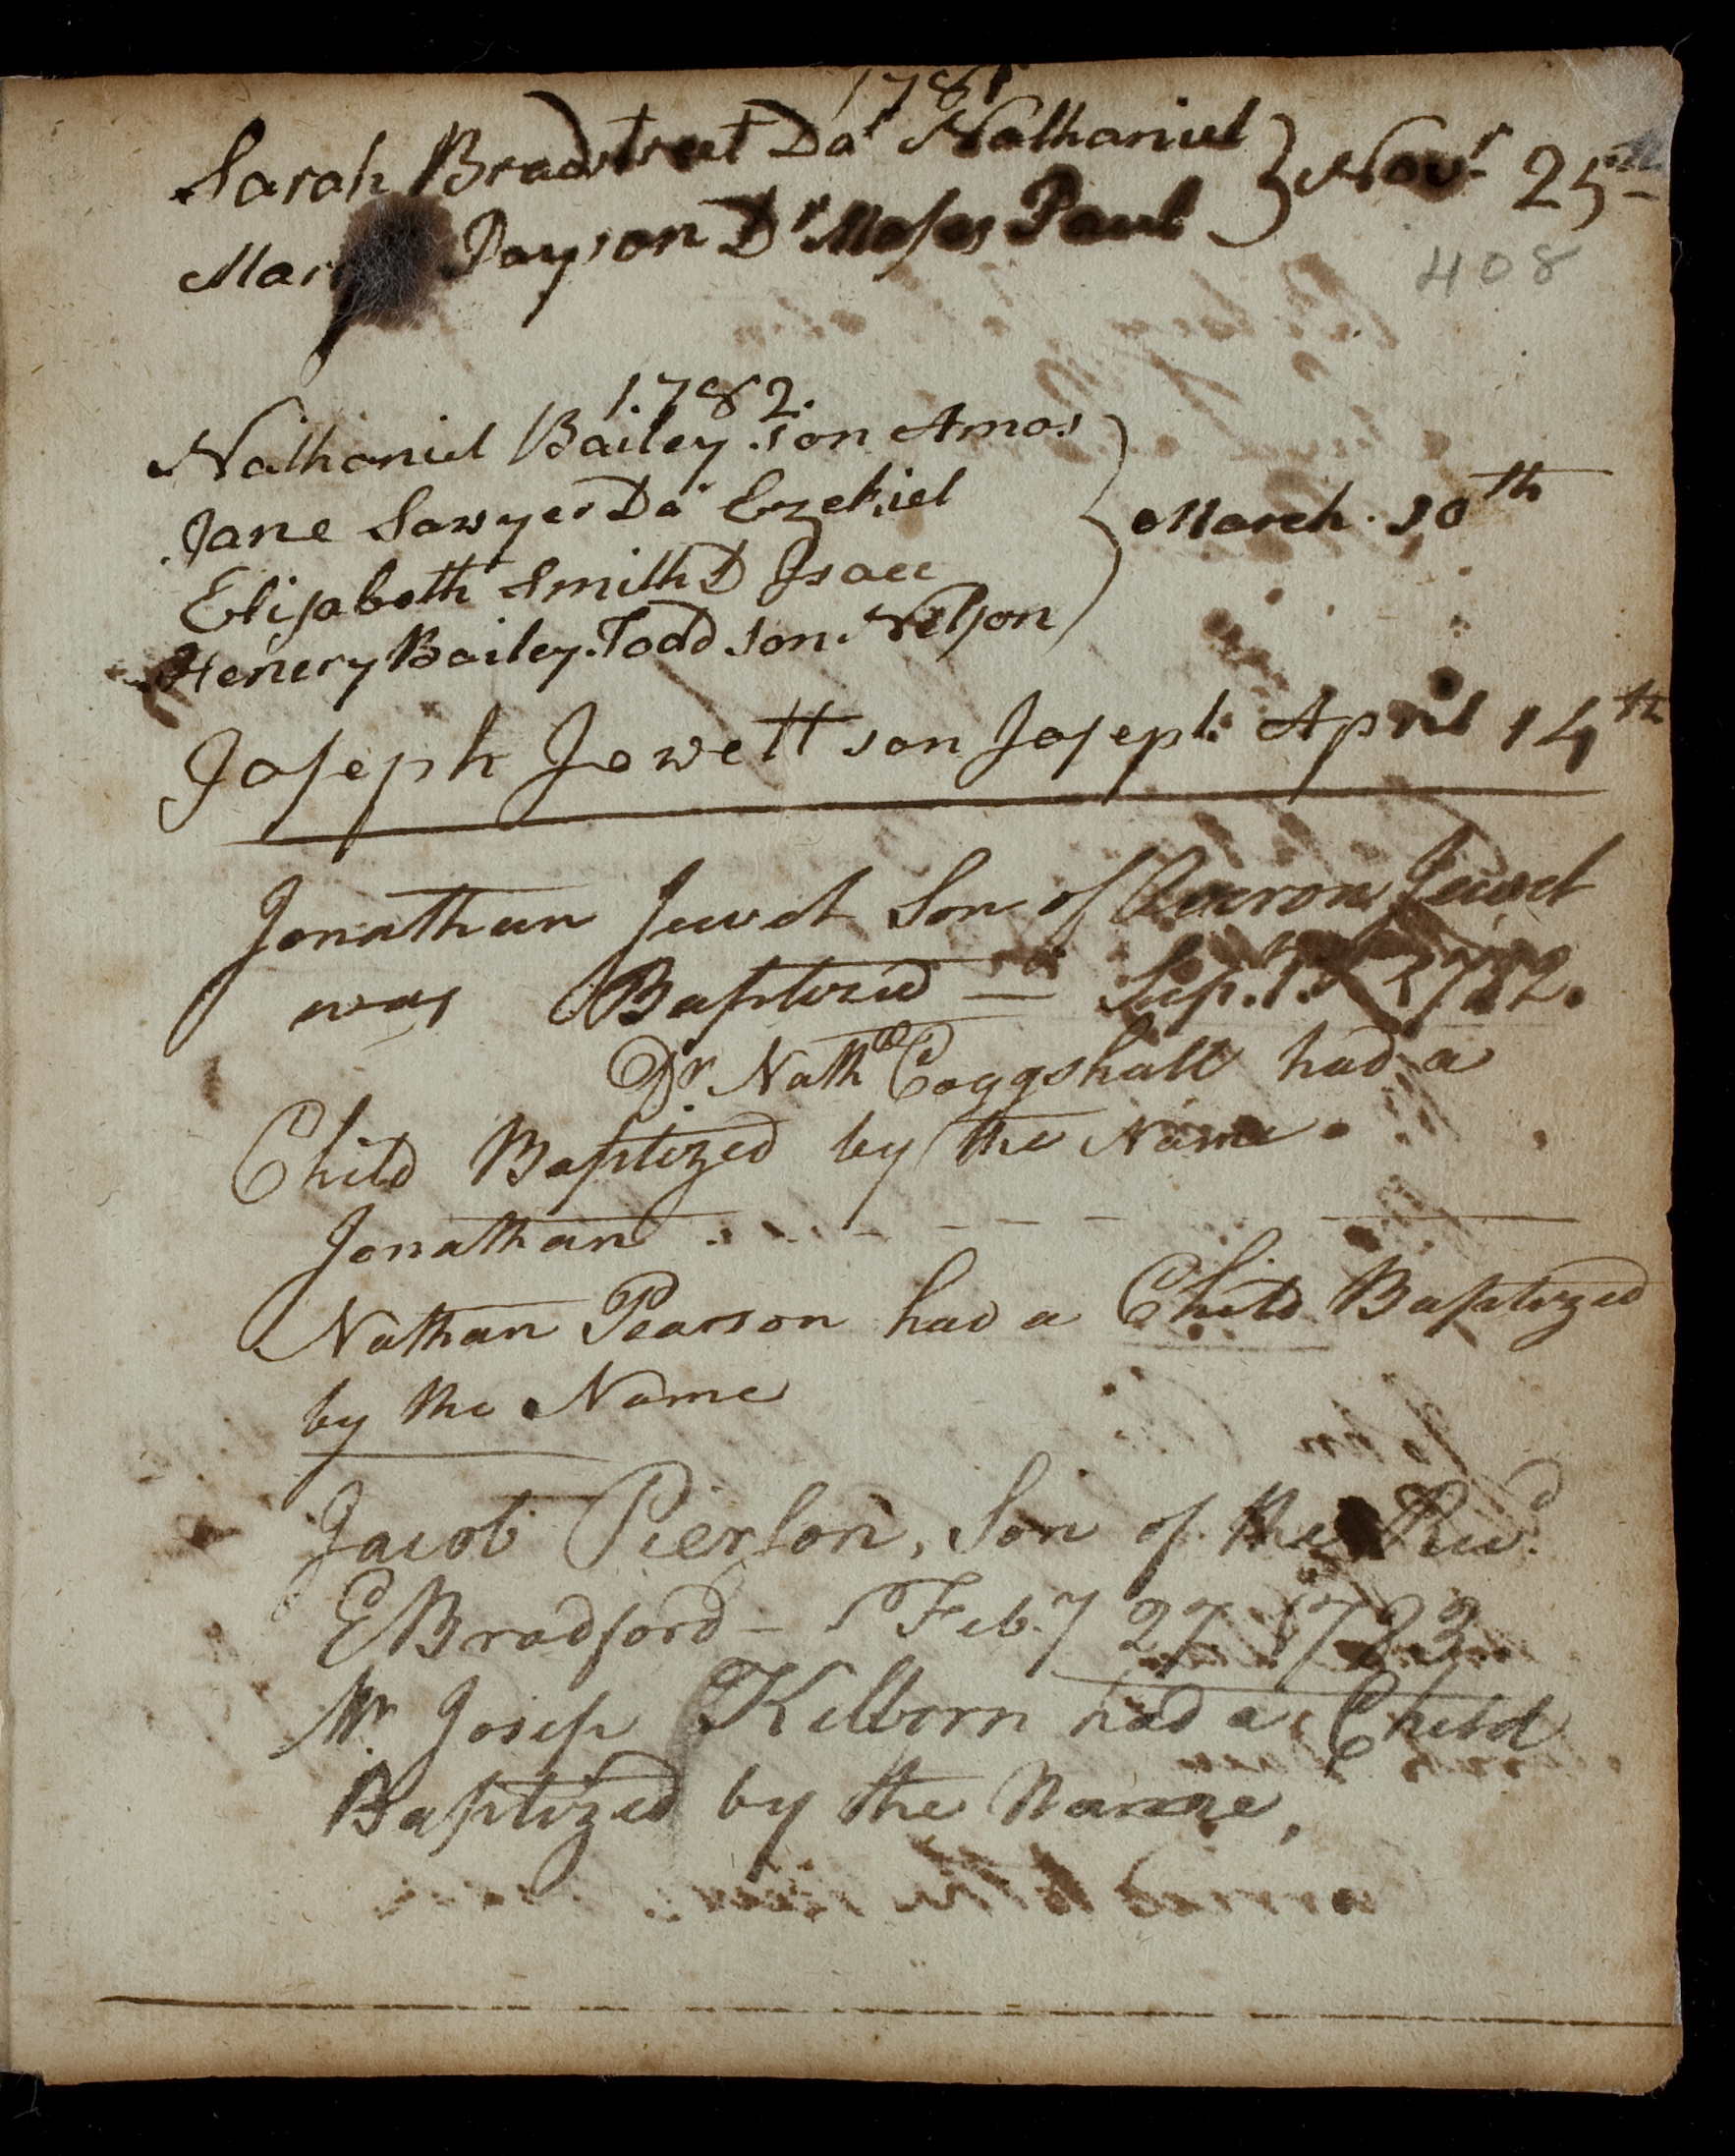 1781
Sarah Bradstreet Dar Nathaniel } Novr 25th
Mar Payson Dr Moses Paul
408
1782.
Nathaniel Bailey son Amos
Jane Sawyer Dar Ezekiel
March 10th
Elisabeth Smith D Isaac
Henery Bailey Todd son Nelson
Joseph Jewett son Joseph April 14th
Jonathan Jewet Son of Aaron Jewet
was Baptized — Sep. 1782.
Dr. Nathll Coggshall had a
Child Baptized by the Name
Jonathan
Nathan Pearson had a Child Baptized
by the Name
Jacob Pierson, Son of the Revd.
E Bradford — Feby 27 1783
Mr. Josep Kilborn had a Child
Baptized by the Name,